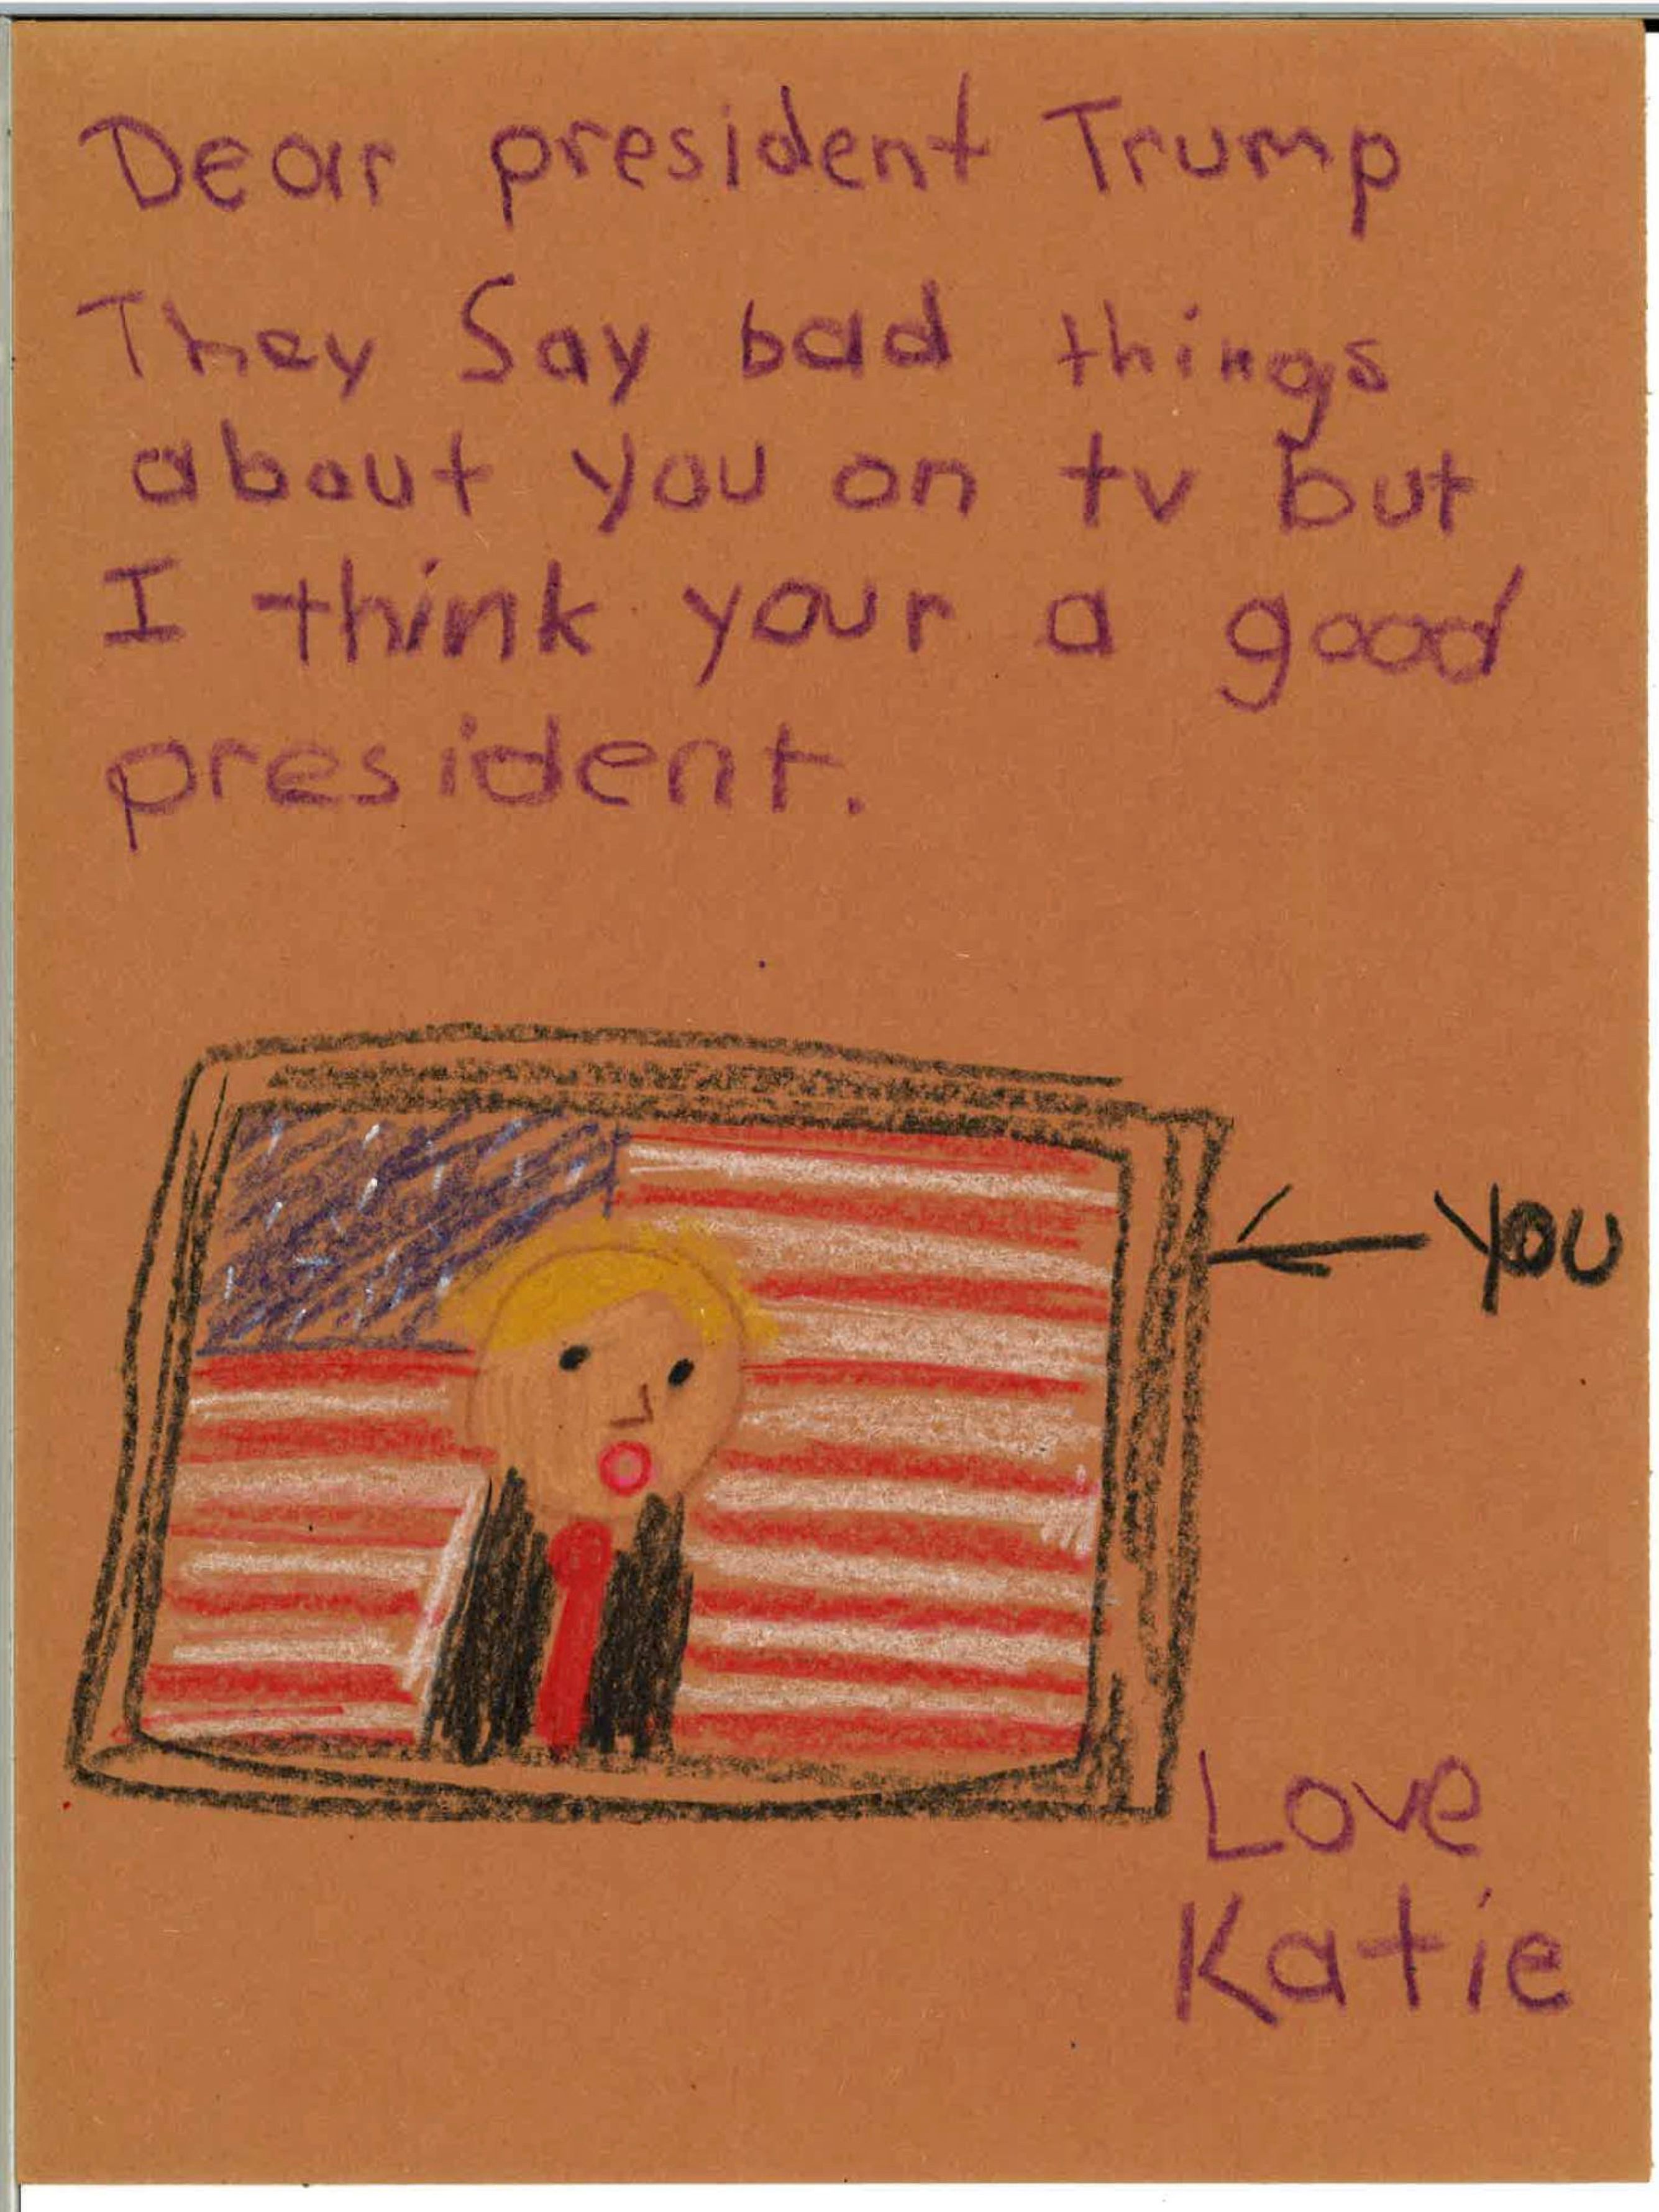 Dear president Trump
They Say bad things
about you on tv but
I think your a good
president.
YOU
Love
Katie